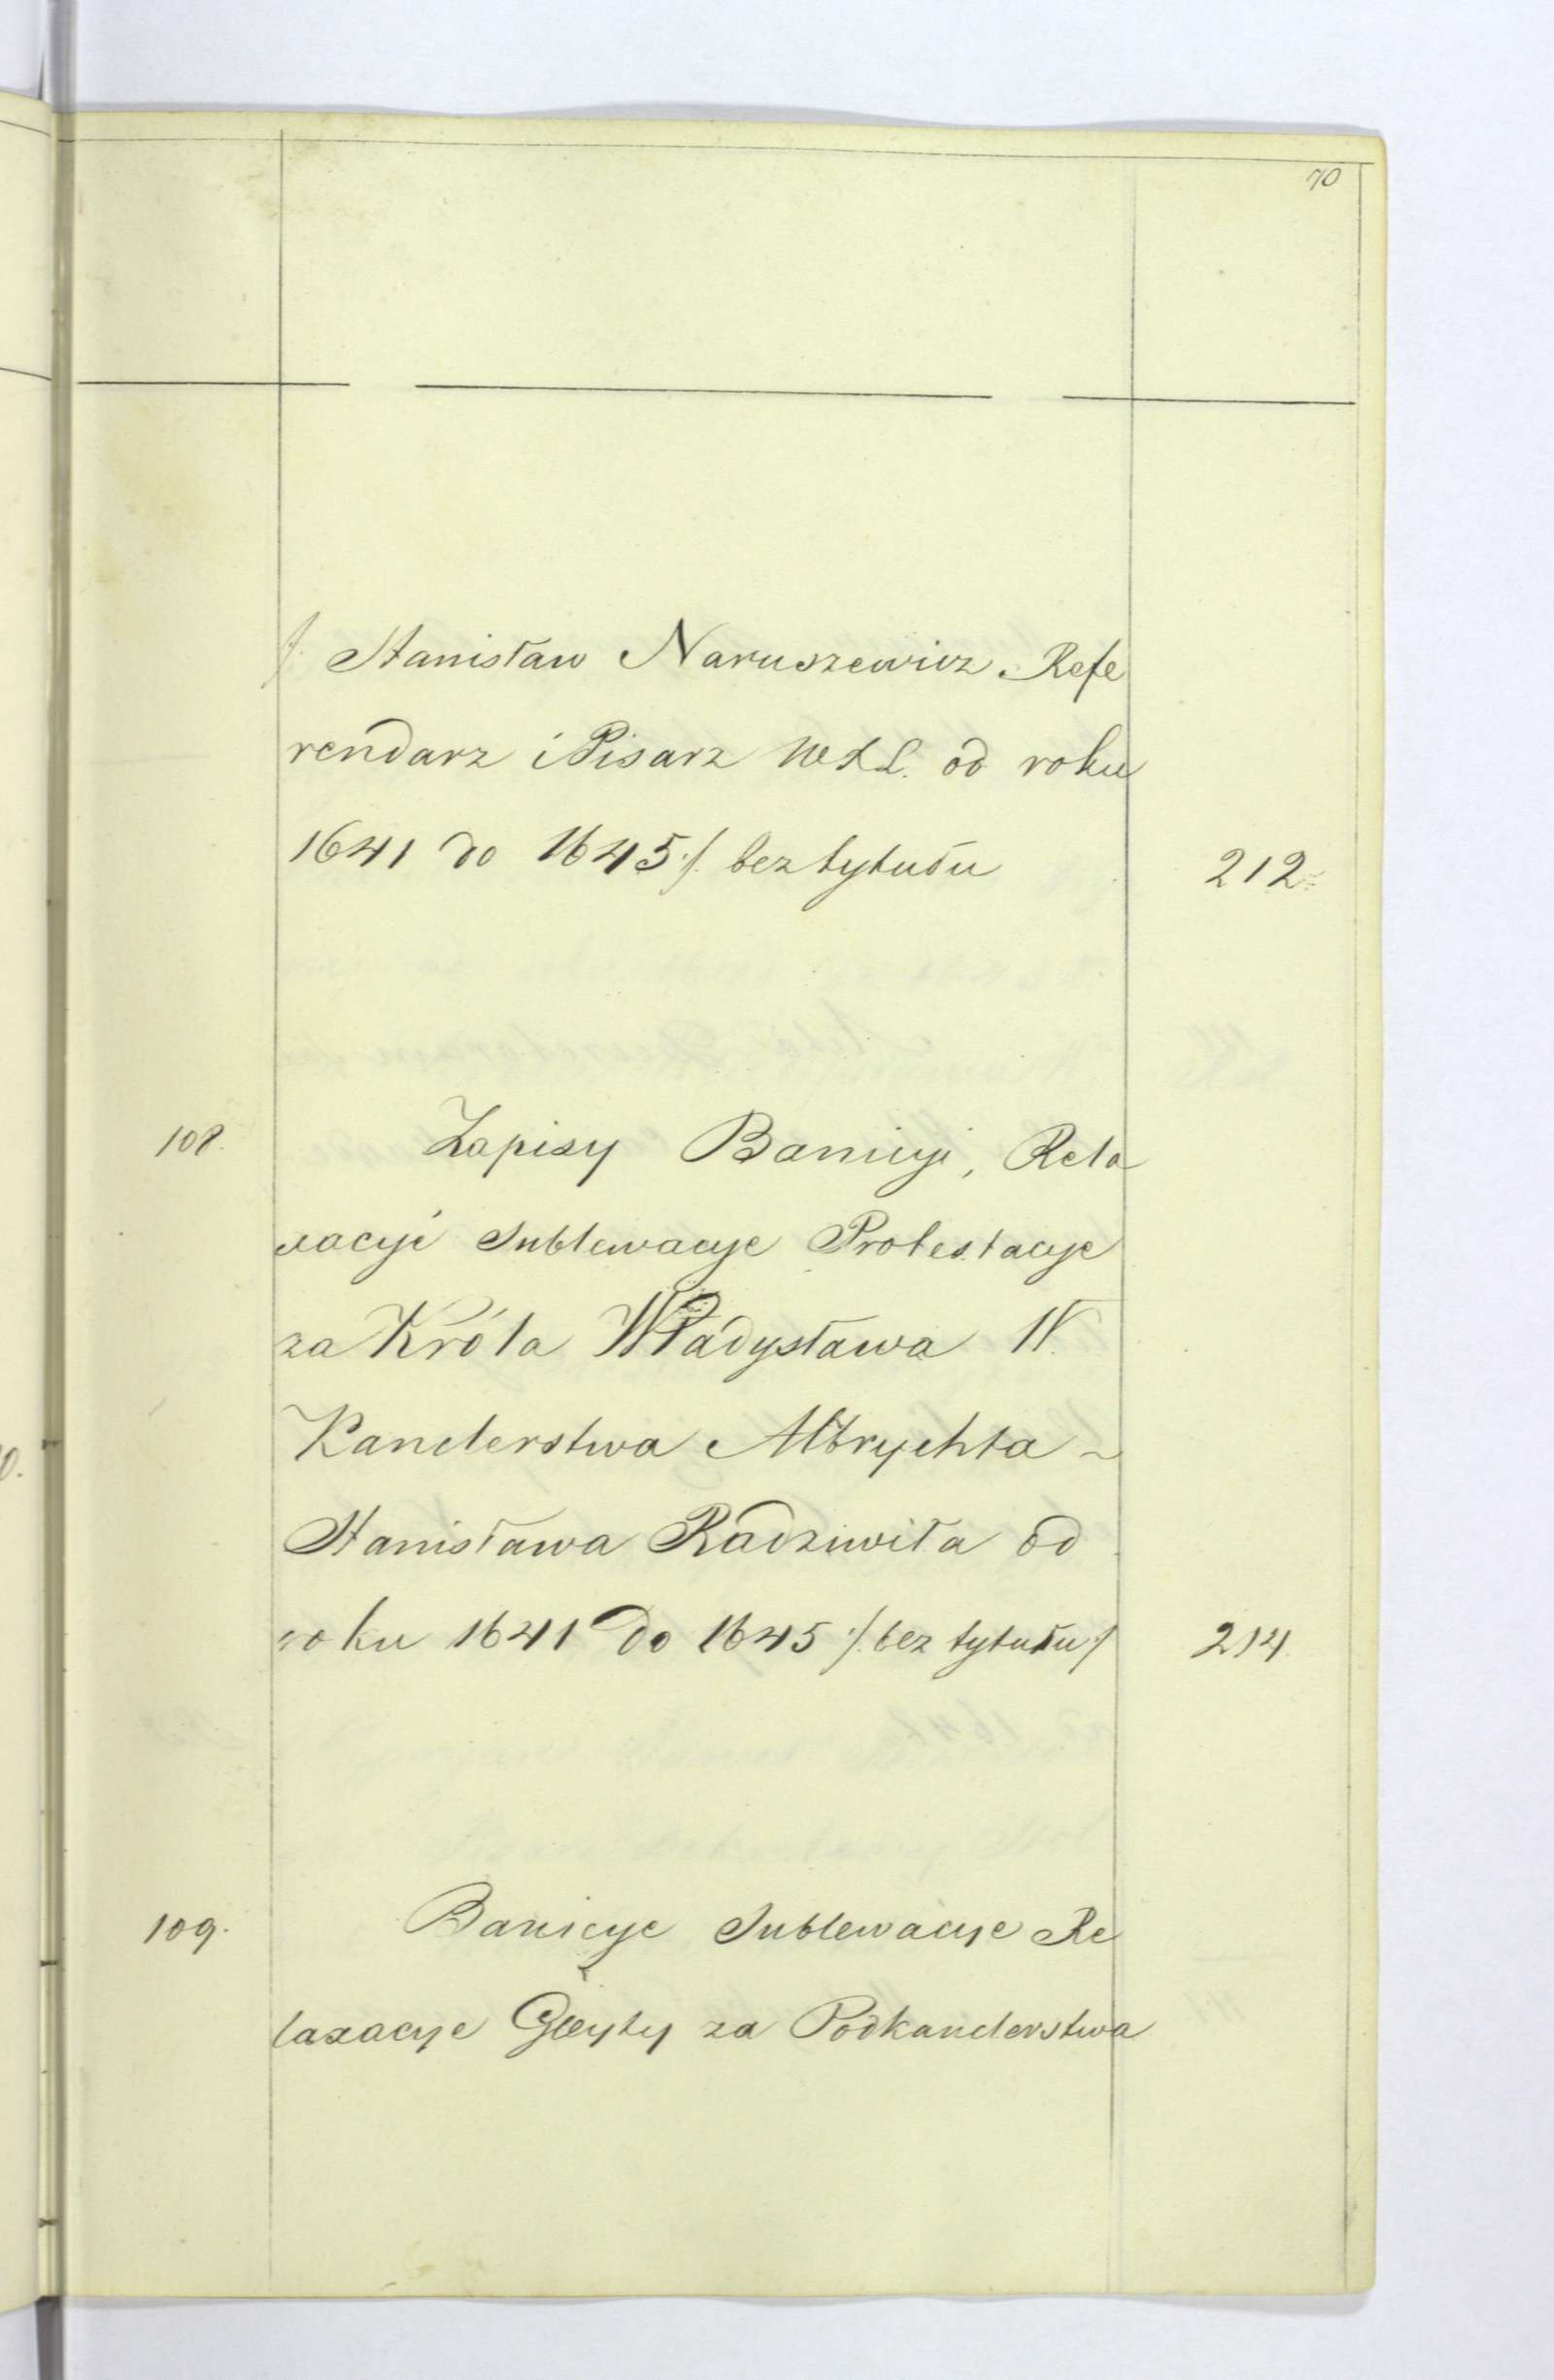 70
/. Stanisław Naruszewicz Refe
rendarz i Pisarz W X L. od roku
1641 do 1645 ./. bez tytułu 212
108. Zapisy Banicyi, Rela
xacyi Sublewacye Protestacye
za Króla Władysława IV.
Kanclerstwa Albrychta
Stanisława Radziwiła od
roku 1641 do 1645 /. bez tytułu ./ 214
109. Banicye Sublewacye Re
laxacye Gleyty za Podkanclerstwa